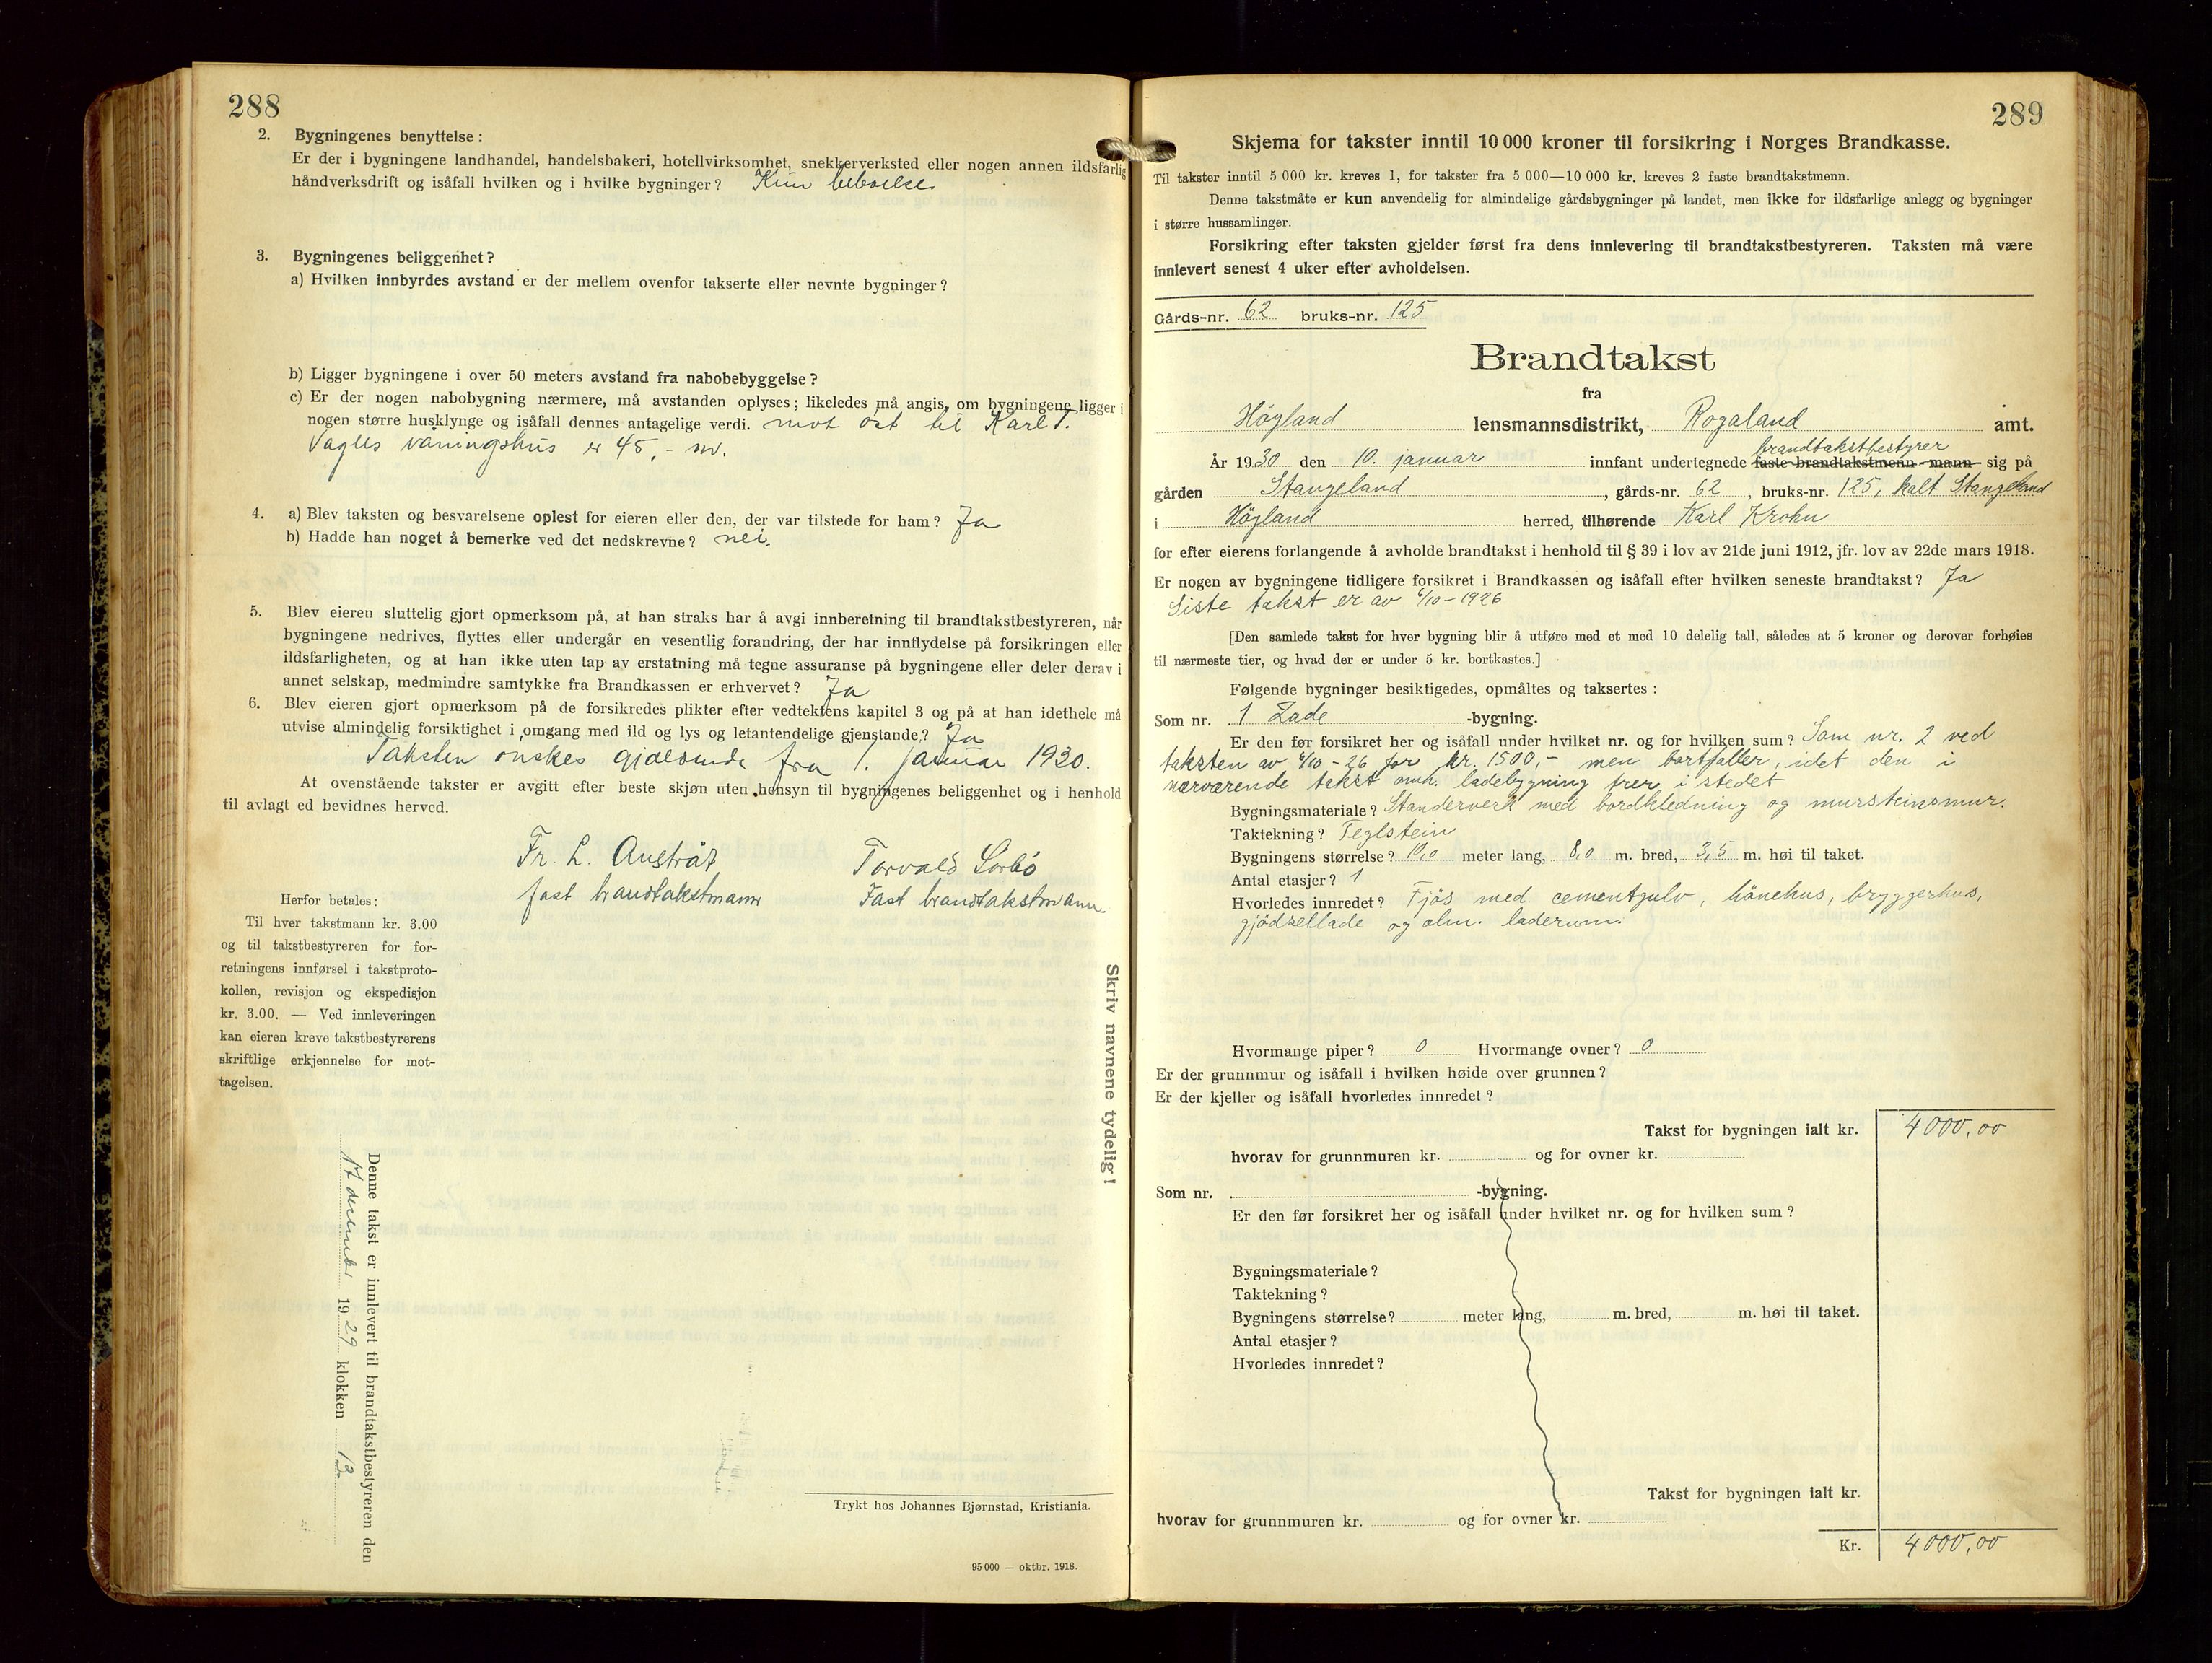 288
2. Bygningenes benyttelse:
Er der i bygningene landhandel, handelsbakeri, hotellvirksomhet, snekkerverksted eller nogen annen ildsfarlig
håndverksdrift og isåfall hvilken og i hvilke bygninger? Kun beboelse
3. Bygningenes beliggenhet?
a) Hvilken innbyrdes avstand er der mellem ovenfor takserte eller nevnte bygninger?
b) Ligger bygningene i over 50 meters avstand fra nabobebyggelse?
c) Er der nogen nabobygning nærmere, må avstanden oplyses; likeledes må angis, om bygningene ligger i
nogen større husklynge og isåfall dennes antagelige verdi. mot øst til Karl T.
Vagles våningshus er 45,- m.
4. a) Blev taksten og besvarelsene oplest for eieren eller den, der var tilstede for ham? Ja
b) Hadde han noget å bemerke ved det nedskrevne? nei.
5. Blev eieren sluttelig gjort opmerksom på, at han straks har å avgi innberetning til brandtakstbestyreren, når
bygningene nedrives, flyttes eller undergår en vesentlig forandring, der har innflydelse på forsikringen eller
ildsfarligheten, og at han ikke uten tap av erstatning må tegne assuranse på bygningene eller deler derav i
annet selskap, medmindre samtykke fra Brandkassen er erhvervet? Ja
6. Blev eieren gjort opmerksom på de forsikredes plikter efter vedtektens kapitel 3 og på at han idethele må
utvise almindelig forsiktighet i omgang med ild og lys og letantendelige gjenstande? Ja
Taksten ønskes gjældende fra 1. januar 1930.
At ovenstående takster er avgitt efter beste skjøn uten hensyn til bygningenes beliggenhet og i henhold
til avlagt ed bevidnes herved.
Fr. L. Austråt Torvald Sørbö
fast brandtakstmann Fast brandtakstmann.
Herfor betales:
Til hver takstmann kr. 3.00
og til takstbestyreren for for-
retningens innførsel i takstproto-
kollen, revisjon og ekspedisjon
kr. 3.00. — Ved innleveringen
kan eieren kreve takstbestyrerens
skriftlige erkjennelse for mot-
tagelsen.
Denne takst er innlevert til brandtakstbestyreren den
17 desember 1929 klokken 13
Skriv navnene tydelig!
Trykt hos Johannes Bjørnstad, Kristiania.
95 000 — oktbr. 1918.
289
Skjema for takster inntil 10 000 kroner til forsikring i Norges Brandkasse.
Til takster inntil 5 000 kr. kreves 1, for takster fra 5 000—10 000 kr. kreves 2 faste brandtakstmenn.
Denne takstmåte er kun anvendelig for almindelige gårdsbygninger på landet, men ikke for ildsfarlige anlegg og bygninger
i større hussamlinger.
Forsikring efter taksten gjelder først fra dens innlevering til brandtakstbestyreren. Taksten må være
innlevert senest 4 uker efter avholdelsen.
Gårds-nr. 62 bruks-nr. 125
Brandtakst
fra
Höyland lensmannsdistrikt, Rogaland amt.
brandtakstbestyrer
År 1930 den 10. januar innfant undertegnede faste brandtakstmenn - mann sig på
gården Stangeland, gårds-nr. 62, bruks-nr. 125, kalt Stangeland
i Höyland herred, tilhørende Karl Krohn
for efter eierens forlangende å avholde brandtakst i henhold til § 39 i lov av 21de juni 1912, jfr. lov av 22de mars 1918.
Er nogen av bygningene tidligere forsikret i Brandkassen og isåfall efter hvilken seneste brandtakst? Ja
Siste takst er av 6/10-1926
[Den samlede takst for hver bygning blir å utføre med et med 10 delelig tall, således at 5 kroner og derover forhøies
til nærmeste tier, og hvad der er under 5 kr. bortkastes.]
Følgende bygninger besiktigedes, opmåltes og taksertes:
Som nr. 1 Lade -bygning.
Er den før forsikret her og isåfall under hvilket nr. og for hvilken sum? Som nr. 2 ved
taksten av 6/10-26 for kr. 1500,- men bortfaller, idet den i
nærværende takst omh. ladebygning trer i stedet
Bygningsmateriale? Standerverk med bordkledning og mursteinsmur.
Taktekning? Teglstein
Bygningens størrelse? 10,0 meter lang, 8,0 m. bred, 3,5 m. høi til taket.
Antal etasjer? 1
Hvorledes innredet? Fjös med cementgulv, hönehus, bryggerhus,
gjödsellade og alm. laderum.
Hvormange piper? 0 Hvormange ovner? 0
Er der grunnmur og isåfall i hvilken høide over grunnen?
Er der kjeller og isåfall hvorledes innredet?
Takst for bygningen ialt kr. 4000,00
hvorav for grunnmuren kr. og for ovner kr.
Som nr. -bygning.
Er den før forsikret her og isåfall under hvilket nr. og for hvilken sum?
Bygningsmateriale?
Taktekning?
Bygningens størrelse? meter lang, m. bred, m. høi til taket.
Antal etasjer?
Hvorledes innredet?
Takst for bygningen ialt kr.
hvorav for grunnmuren kr. og for ovner kr.
Kr. 4000,00